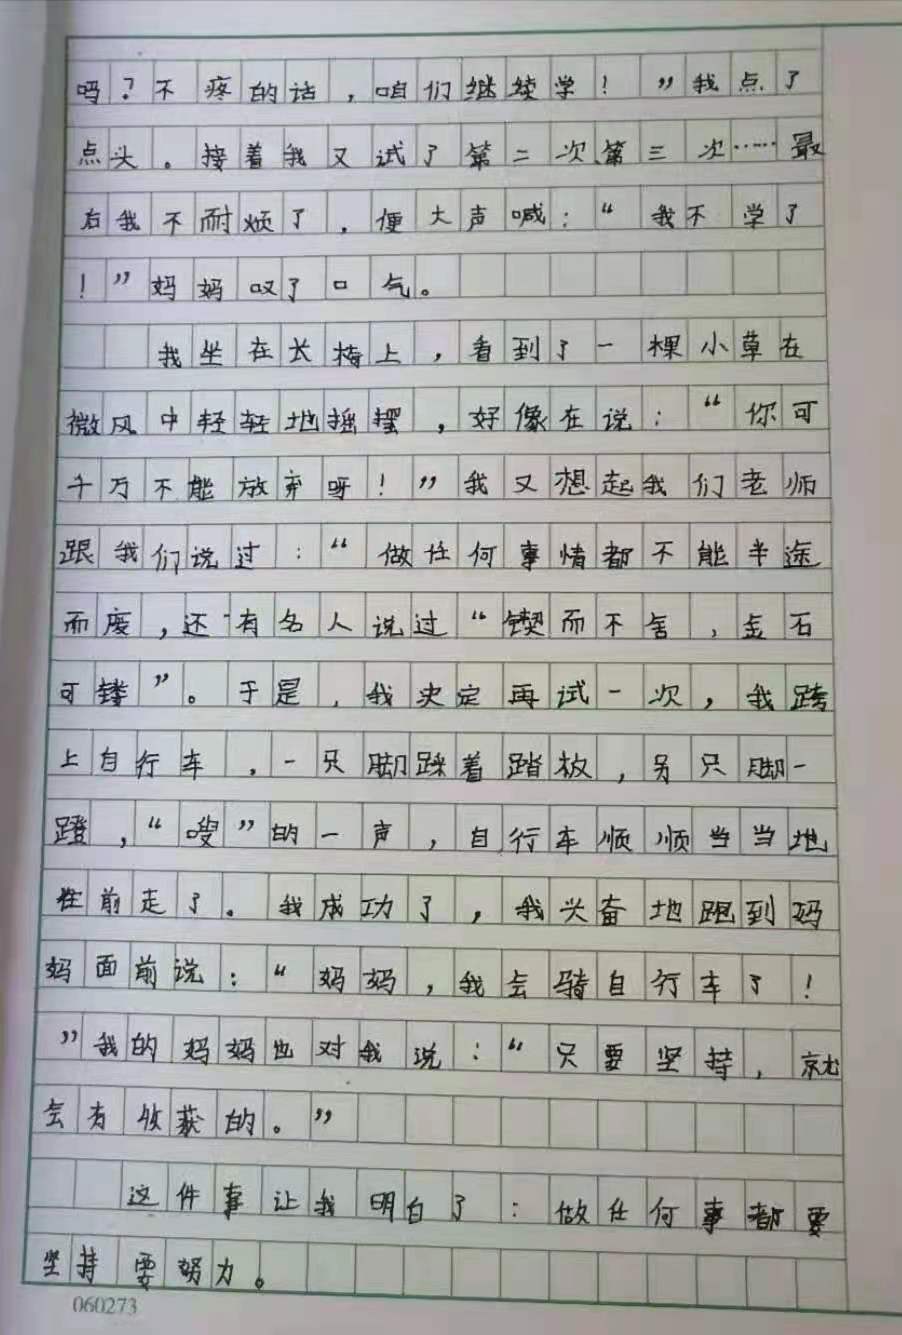 吗？不疼的话，咱们继续学！”我点了
点头。接着我又试了第二次、第三次……最
后我不耐烦了，便大声喊：“我不学了
！”妈妈叹了口气。
我坐在长椅上，看到了一棵小草在
微风中轻轻地摇摆，好像在说：“你可
千万不能放弃呀！”我又想起我们老师
跟我们说过：“做任何事情都不能半途
而废，还有名人说过“锲而不舍，金石
可镂”。于是，我决定再试一次，我跨
上自行车，一只脚踩着踏板，另只脚一
蹬，“嗖”的一声，自行车顺顺当当地
往前走了。我成功了，我兴奋地跑到妈
妈面前说：“妈妈，我会骑自行车了！
”我的妈妈也对我说：“只要坚持，就
会有收获的。”
这件事让我明白了：做任何事都要
坚持要努力。
060273